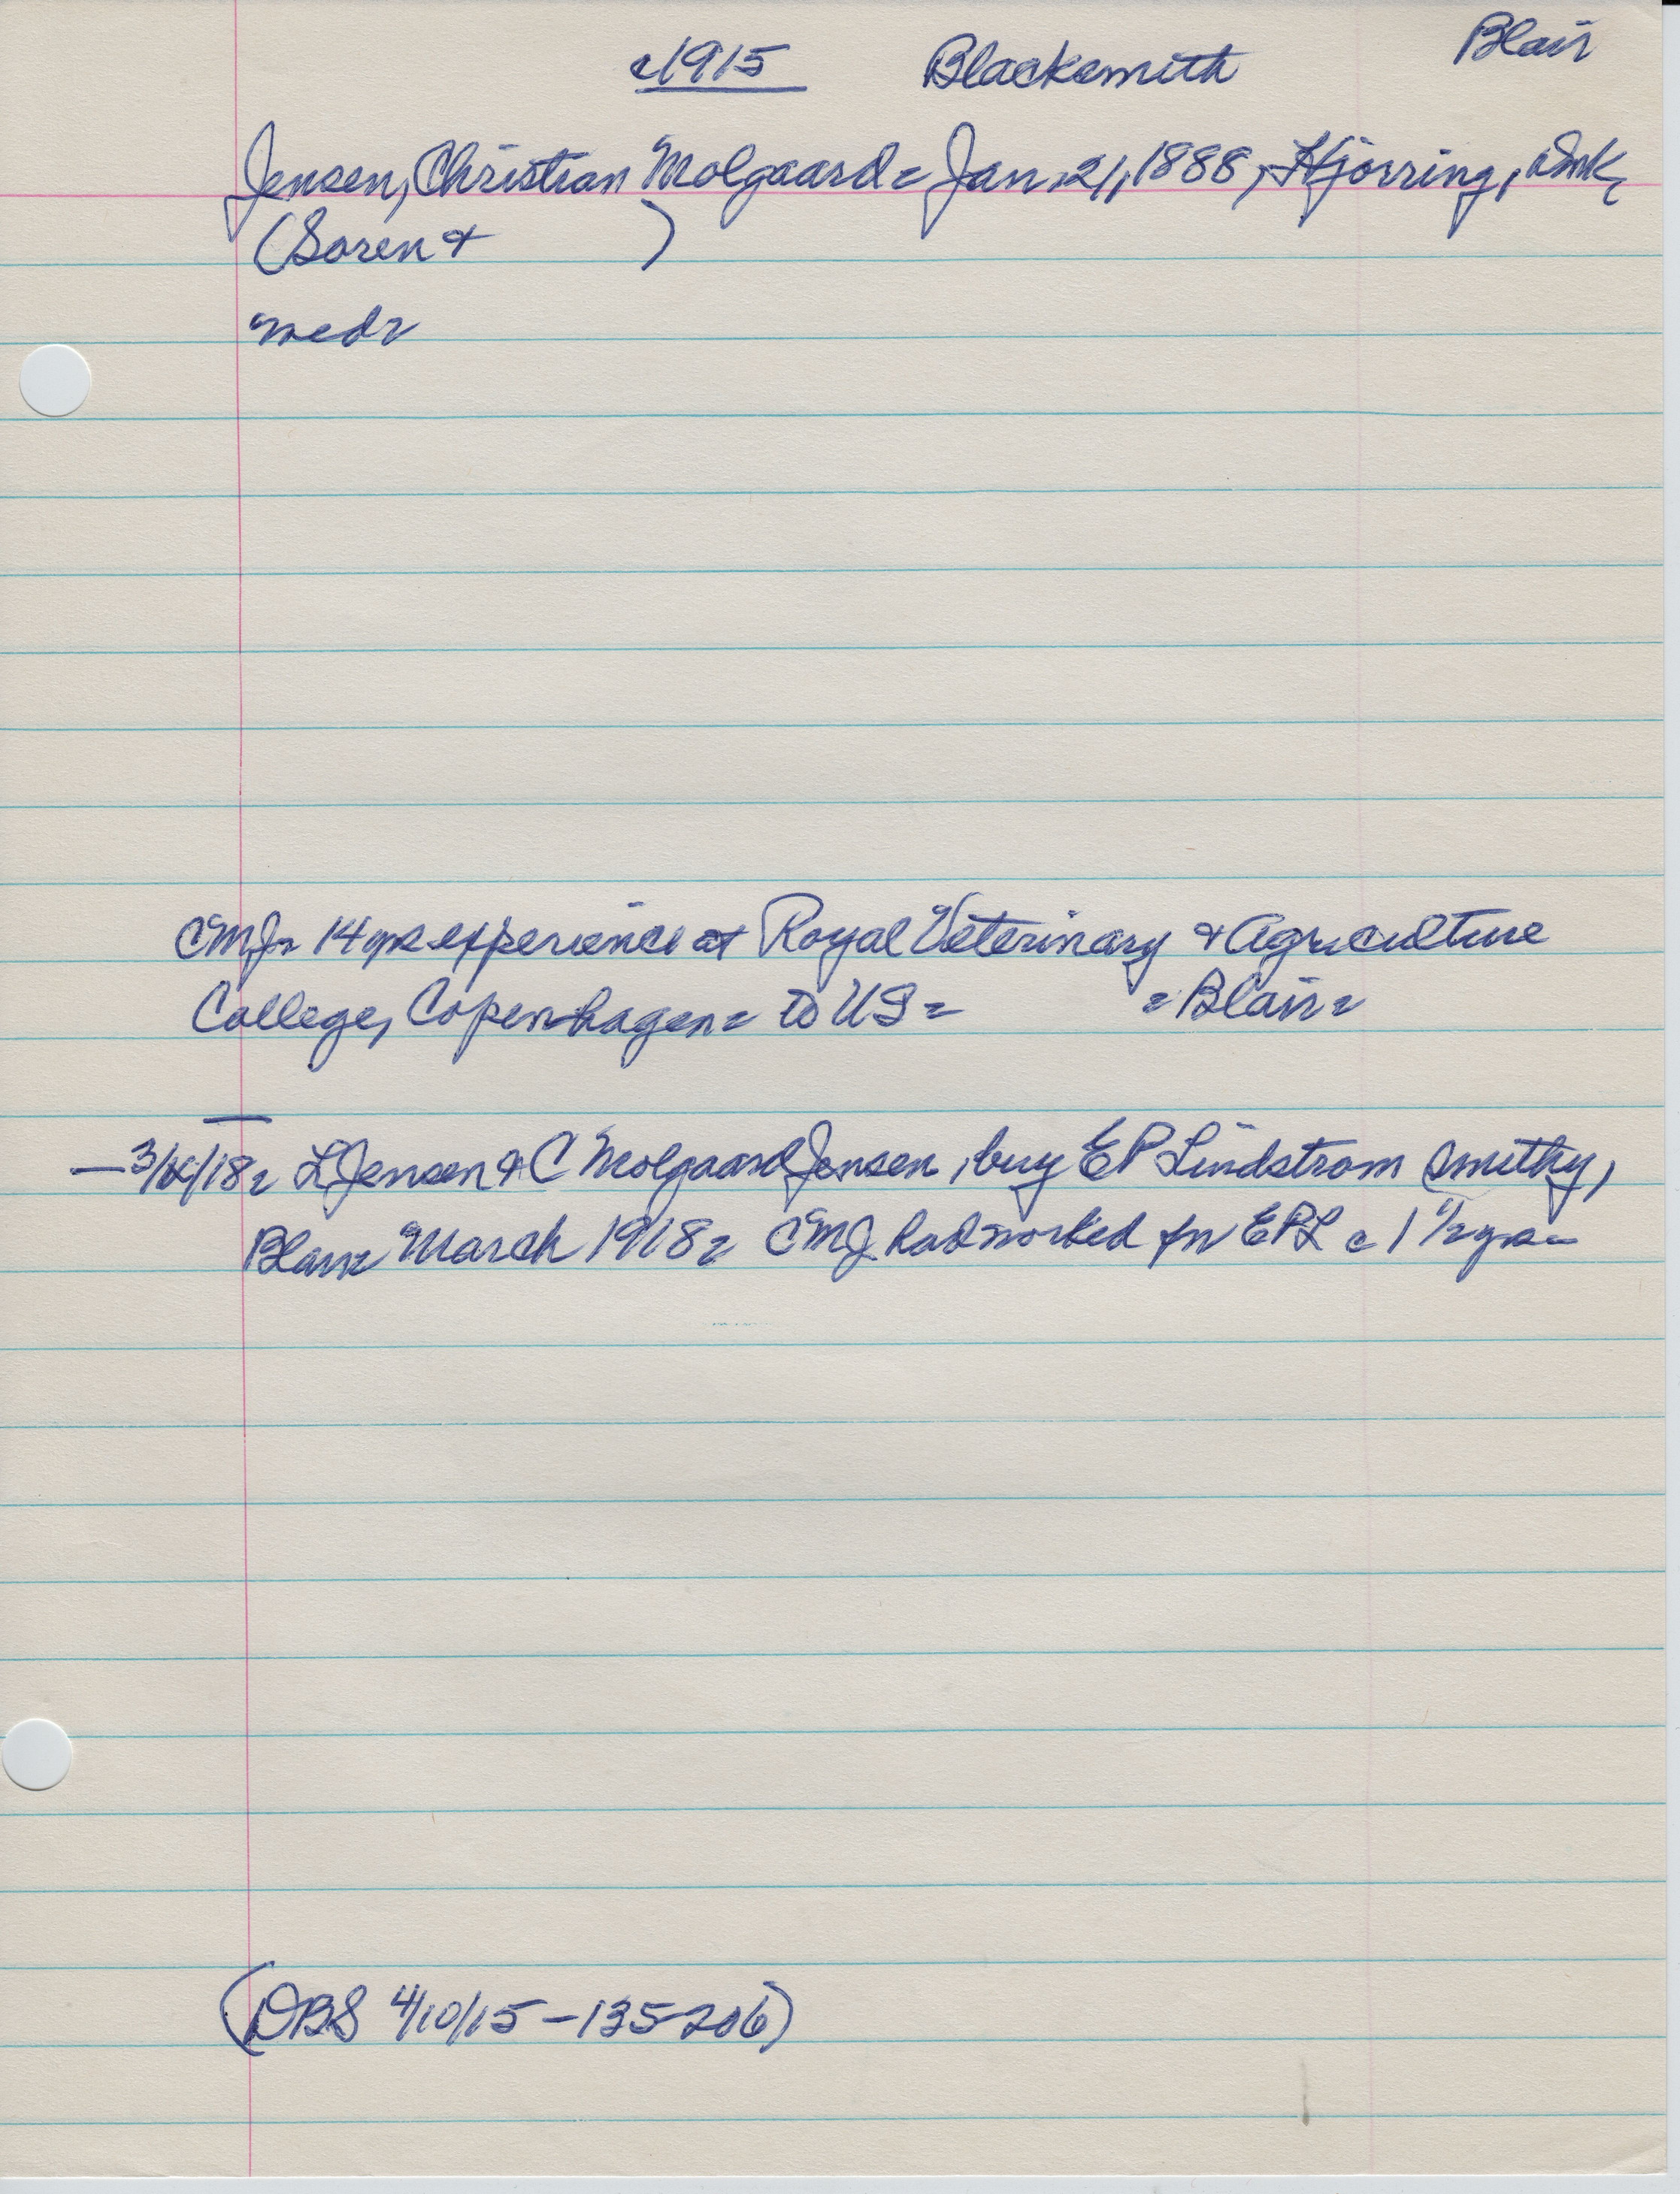 c1915 Blacksmith Blair
Jensen, Christian Molgaard = Jan 21, 1888, Hjorring, Dmk,
(Soren + )
med =
CMJ = 14 yrs experience at Royal Veterinary & Agriculture
College, Copenhagen = to US = = Blair =
L Jensen & C Molgaard Jensen, buy E P Lindstrom smithy,
Blair = March 1918 = CMJ had worked for EPL c 1 1/2 yrs -
(DBS 4/10/15 - 135-206)